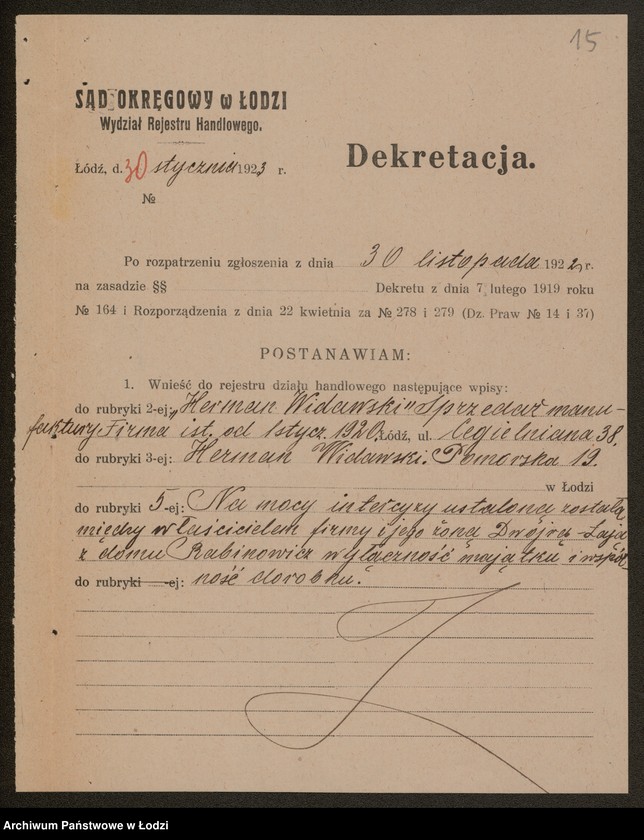 15
SĄD OKRĘGOWY w ŁODZI
Wydział Rejestru Handlowego.
Dekretacja.
Łódź, d. 30 stycznia 1923 r.
№
Po rozpatrzeniu zgłoszenia z dnia 30 listopada 1922 r.
na zasadzie §§ Dekretu z dnia 7 lutego 1919 roku
№ 164 i Rozporządzenia z dnia 22 kwietnia za № 278 i 279 (Dz. Praw № 14 i 37)
POSTANAWIAM:
1. Wnieść do rejestru działu handlowego następujące wpisy:
do rubryki 2-ej: „Herman Widawski” Sprzedaż manu-
faktury. Firma ist. od 1 stycz. 1920. Łódź, ul. Cegielniana 38.
do rubryki 3-ej: Herman Widawski. Pomorska 19.
w Łodzi
do rubryki 5-ej: Na mocy intercyzy ustaloną została
między właścicielem firmy i jego żoną Dwojrą-Łają
z domu Rabinowicz wyłączność majątku i wspól-
do rubryki -ej: ność dorobku.
Archiwum Państwowe w Łodzi